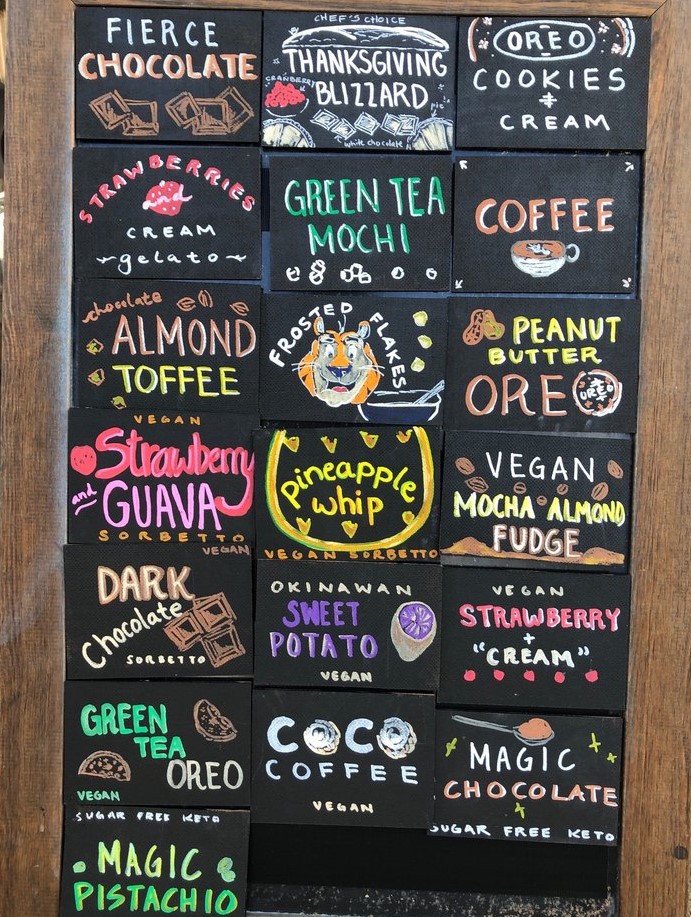 FIERCE
CHOCOLATE
CHEF'S CHOICE
THANKSGIVING
CRANBERRY
BLIZZARD
pie
white chocolate
OREO
COOKIES
+
CREAM
STRAWBERRIES
and
CREAM
~gelato~
GREEN TEA
MOCHI
COFFEE
chocolate
ALMOND
TOFFEE
FROSTED FLAKES
PEANUT
BUTTER
OREO
OREO
VEGAN
Strawberry
and
GUAVA
SORBETTO
pineapple
whip
VEGAN SORBETTO
VEGAN
MOCHA ALMOND
FUDGE
VEGAN
DARK
Chocolate
SORBETTO
OKINAWAN
SWEET
POTATO
VEGAN
VEGAN
STRAWBERRY
+
"CREAM"
GREEN
TEA
OREO
VEGAN
COCO
COFFEE
VEGAN
MAGIC
CHOCOLATE
SUGAR FREE KETO
SUGAR FREE KETO
MAGIC
PISTACHIO